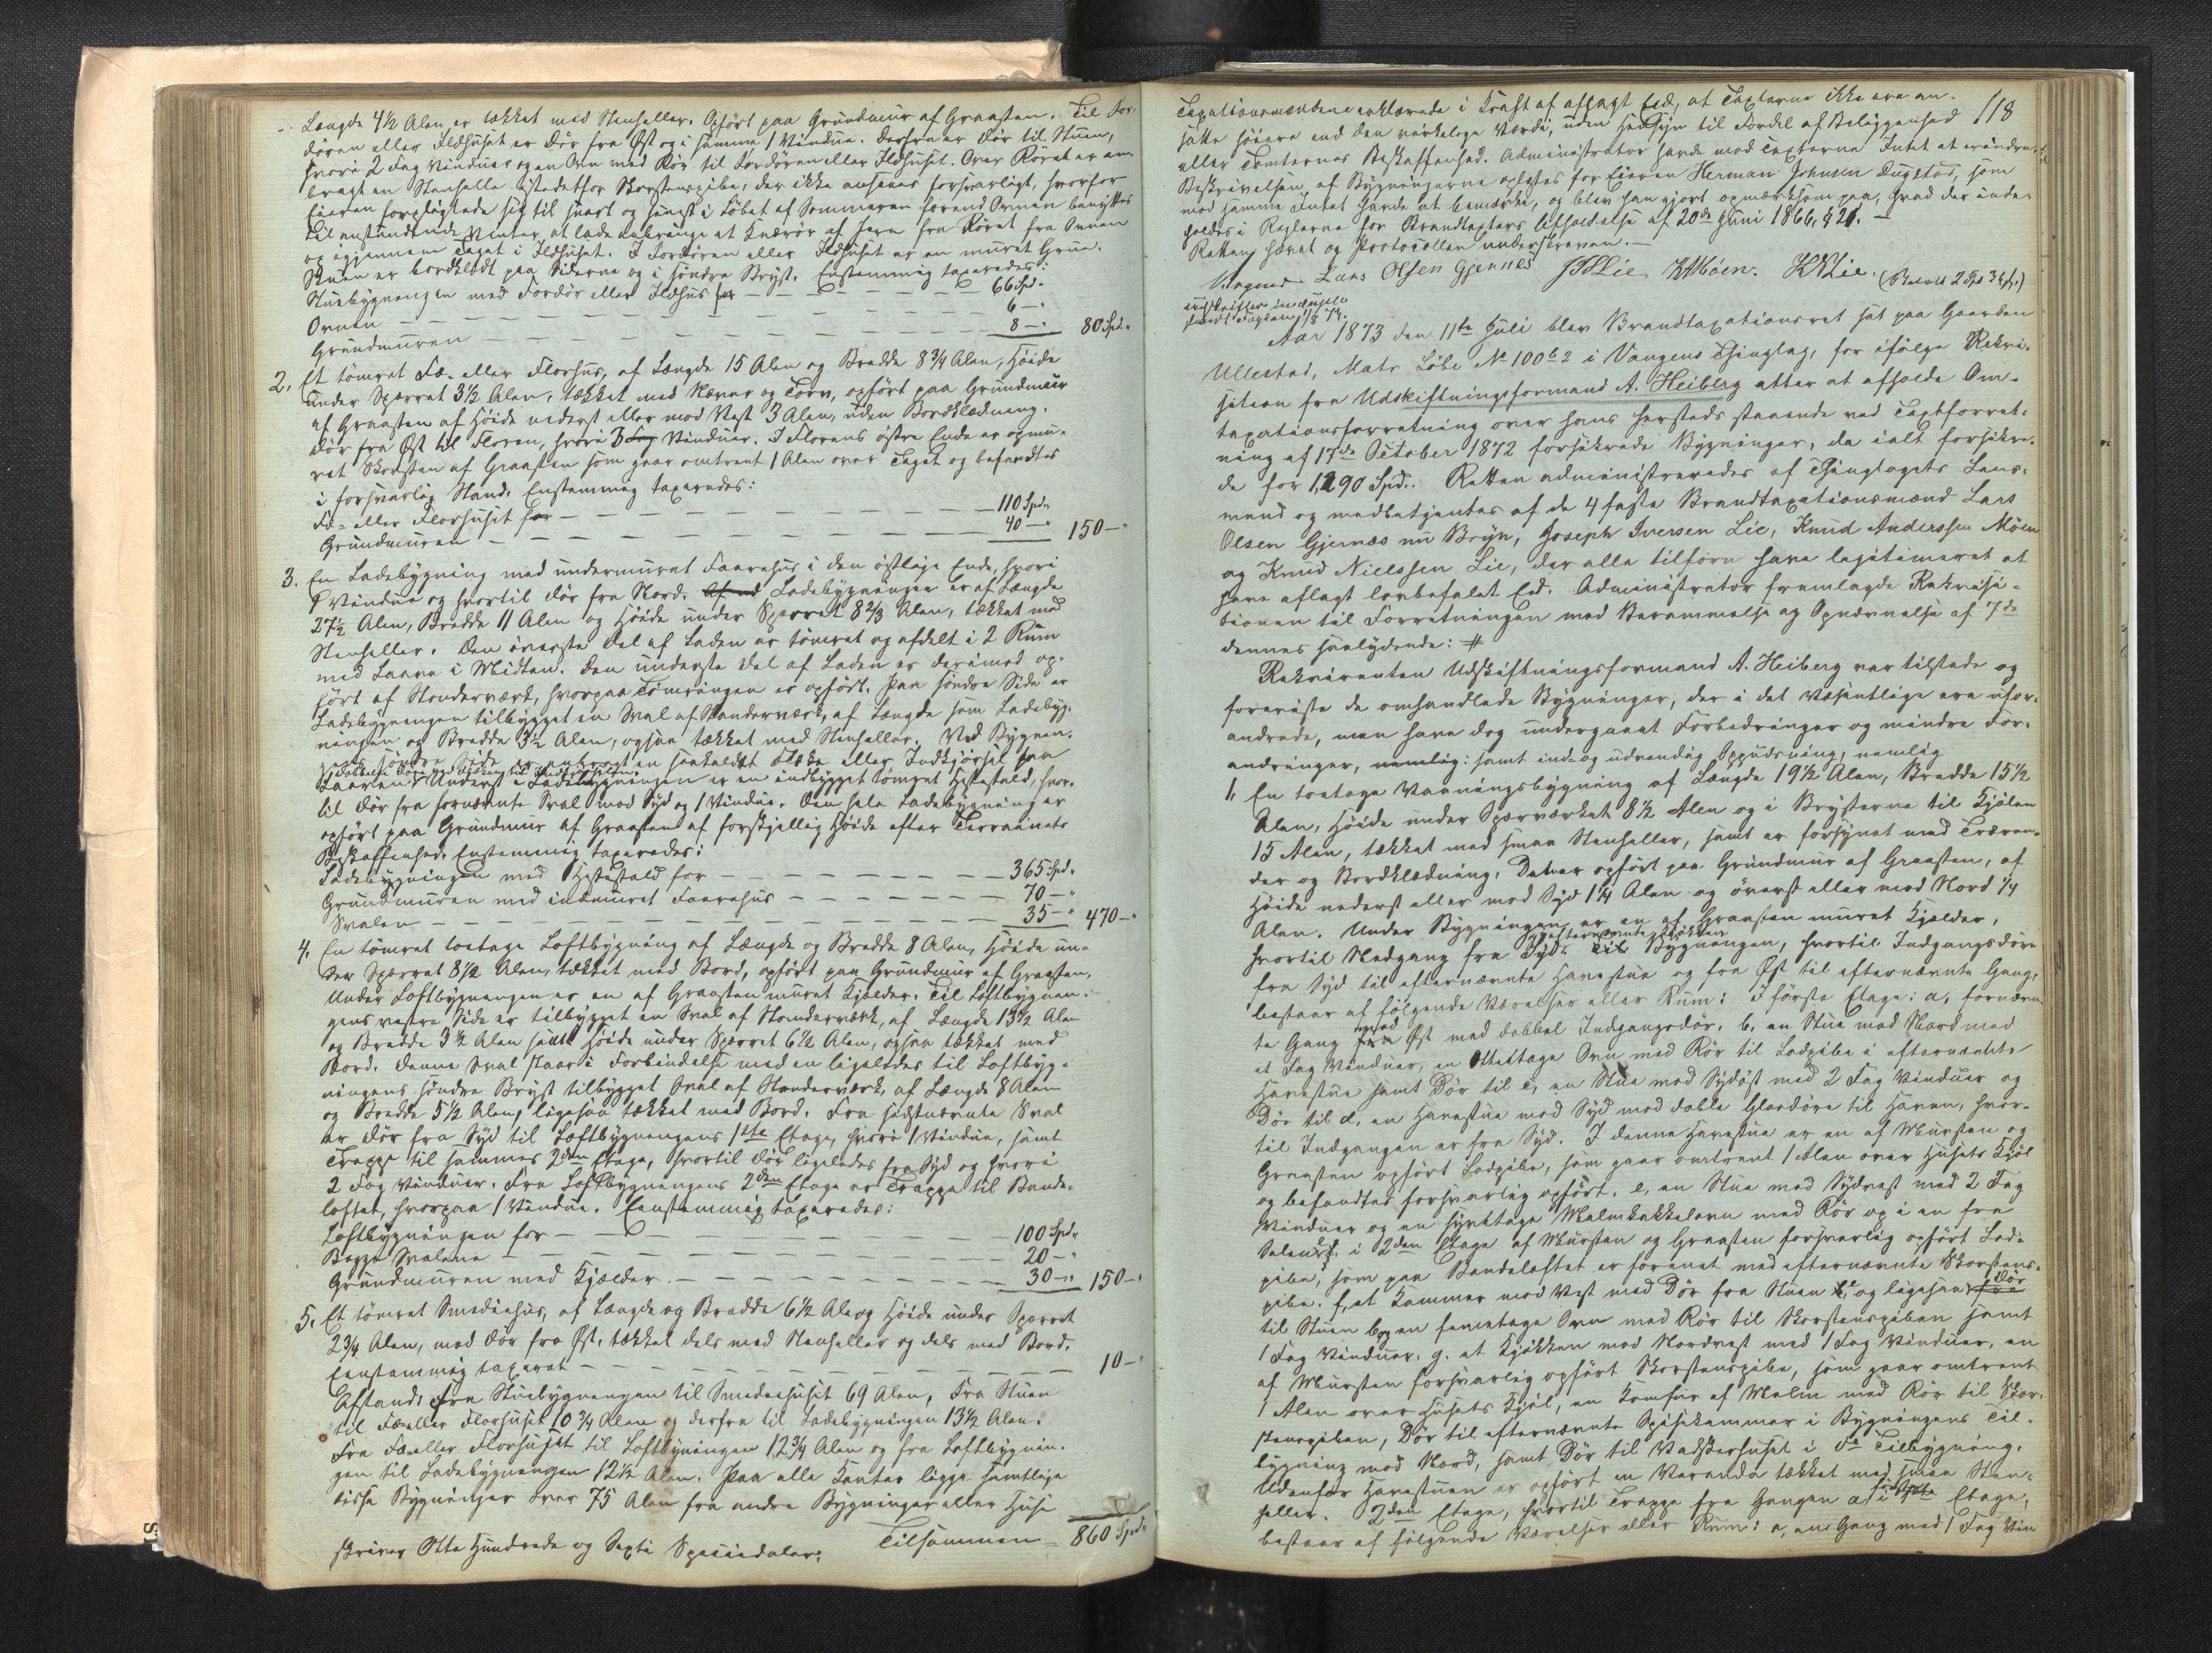 Længde 4½ Alen er tækket med Stenheller. Opført paa Grundmuur af Graasten. Til For-
døren eller Ildhuset er Dør fra Øst og i samme 1 Vindue. Derfra er Dør til Stuen,
hvori 2 Fag Vinduer og en Ovn med Rør til Fordøren eller Ildhuset. Over Røret er an-
bragt en Stenhelle istedetfor Skorstenspibe, der ikke ansaaes forsvarligt, hvorfor
Eieren forpligtede sig til snart og senest i Løbet af Sommeren forend Ovnen benyttes
til anstundende Vinter, at lade anbringe et Knærør af Jern fra Røret fra Ovnen
og igjennem Taget i Ildhuset. I Fordøren eller Ildhuset er en muret Grue.
Stuen er bordklædt paa Siderne og i søndre Bryst. Enstemmig taxeredes:
Stuebygningen med Fordør eller Ildhus for — 66 Spd.
Ovnen — 6 —
Grundmuren — 8 — 80 Spd.
2. Et tømret Fæ- eller Florhus, af Længde 15 Alen og Bredde 8¾ Alen, Høide
under Sperret 3½ Alen, tækket med Næver og Torv, opført paa Grundmuur
af Graasten af Høide nederst eller mod Vest 3 Alen, uden Bordklædning.
Dør fra Øst til Floren, hvori 3 Fag Vinduer. I Florens østre Ende er opmu-
ret Skorsten af Graasten som gaar omtrent 1 Alen over Taget og befandtes
i forsvarlig Stand. Enstemmig taxeredes:
Fæ- eller Florhuset for — 110 Spd.
Grundmuren — 40 — 150 —
3. En Ladebygning med undermuret Faarehus i den østlige Ende, hvori
1 Vindue og hvortil Dør fra Nord. Ladebygningen er af Længde
27½ Alen, Bredde 11 Alen og Høide under Sperret 8⅔ Alen, tækket med
Stenheller. Den øverste Del af Laden er tømret og afdelt i 2 Rum
med Laave i Midten. Den underste Del af Laden er derimod op-
ført af Stenderværk, hvorpaa Tømringen er opført. Paa søndre Side er
Ladebygningen tilbygget en Sval af Stenderværk, af Længde som Ladebyg-
ningen og Bredde 3½ Alen, ogsaa tækket med Stenheller. Ved Bygnin-
gens søndre Side er anbragt en saakaldt eller Indkjørsel paa
Laaven. Underst i Ladebygningen er en indbygget tømret Hestestald, hvor-
til Dør fra fornævnte Sval mod Syd og 1 Vindue. Den hele Ladebygning er
opført paa Grundmuur af Graasten af forskjellig Høide efter Terrainets
Beskaffenhed. Enstemmig taxeredes:
Ladebygningen med Hestestald for — 365 Spd.
Grundmuren med indmuret Faarehus — 70 —
Svalen — 35 — 470 —
4. En tømret toetages Loftbygning af Længde og Bredde 8 Alen, Høide un-
der Sperret 8½ Alen, tækket med Bord, opført paa Grundmuur af Graasten,
Under Loftbygningen er en af Graasten muret Kjælder. Til Loftbygnin-
gens vestre Side er tilbygget en Sval af Stenderværk, af Længde 13½ Alen
og Bredde 3½ Alen samt Høide under Sperret 6½ Alen, ogsaa tækket med
Bord. Denne Sval staar i Forbindelse med en ligeledes til Loftbyg-
ningens søndre Bryst tilbygget Sval af Stenderværk, af Længde 8 Alen
og Bredde 5½ Alen, ligesaa tækket med Bord. Fra sidstnævnte Sval
er Dør fra Syd til Loftbygningens 1ste Etage, hvori 1 Vindue, samt
Trappe til sammes 2den Etage, hvortil Dør ligeledes fra Syd og hvori
2 Fag Vinduer. Fra Loftbygningens 2den Etage er Trappe til Bande-
loftet, hvorpaa 1 Vindue. Eenstemmig taxeredes:
Loftbygningen for — 100 Spd.
Begge Svalene — 20 —
Grundmuren med Kjælder — 30 — 150 —
5. Et tømret Smediehus, af Længde og Bredde 6½ Al. og Høide under Sperret
2¾ Alen, med Dør fra Øst, tækket dels med Stenheller og dels med Bord.
Eenstemmig taxeret — 10 —
Afstand: fra Stuebygningen til Smediehuset 69 Alen, Fra Stuen
til Fæ eller Florhuset 10¾ Alen og derfra til Ladebygningen 13½ Alen.
Fra Fæ eller Florhuset til Loftbygningen 12¾ Alen og fra Loftbygnin-
gen til Ladebygningen 12½ Alen. Paa alle Kanter ligge samtlige
disse Bygninger over 75 Alen fra andre Bygninger eller Huse
Tilsammen 860 Spd.
skriver Otte Hundrede og Sexti Speciedaler.
118
Taxationsmændene erklærede i Kraft af aflagt Eed, at Taxterne ikke ere an-
satte høiere end den virkelige Værdi, uden Hensyn til Fordel af Beliggenhed
eller Tomternes Beskaffenhed. Administrator havde mod Taxterne Intet at erindre.
Beskrivelsen af Bygningerne oplæstes for Eieren Herman Johnsen Dugstad, som
mod samme Intet havde at bemærke, og blev han gjort opmærksom paa, hvad der inde-
holdes i Reglerne for Brandtaxters Afholdelse af 20de Juni 1866, § 21. —
Retten hævet og Protocollen underskreven. —
Lars Olsen Gjernes JILie KAMöen. KNLie. (Betalt 2 Spd 36 s.)
Aar 1873 den 11te Juli blev Brandtaxationsret sat paa Gaarden
Ullestad, Matr Løbe No 100 b 2 i Vangens Thinglag, for ifølge Rekvi-
sition fra Udskiftningsformand A. Heiberg atter at afholde Om-
taxationsforretning over hans hersteds staaende ved Taxtforret-
ning af 17de October 1872 forsikrede Bygninger, da ialt forsikre-
de for 1,290 Spd. Retten administreredes af Thinglagets Lens-
mand og medbetjentes af de 4 faste Brandtaxationsmænd Lars
Olsen Gjernæs nu Bryn, Joseph Iversen Lie, Knud Anderssen Möen
og Knud Nielssen Lie, der alle tilforn have legitimeret at
have aflagt lovbefalet Eed. Administrator fremlagde Rekvisi-
tionen til Forretningen med Berammelse og Opnævnelse af 7de
dennes saalydende: #
Rekvirenten Udskiftningsformand A. Heiberg var tilstede og
foreviste de omhandlede Bygninger, der i det Væsentlige ere ufor-
andrede, men have dog undergaaet Forbedringer og mindre For-
andringer, samt ind- og udvendig Oppudsning, nemlig
1, En toetages Vaaningsbygning af Længde 19½ Alen, Bredde 15½
Alen, Høide under Sperværket 8½ Alen og i Brysterne til Kjølen
15 Alen, tækket med smaa Stenheller, samt er forsynet med Træren-
der og Bordklædning. Den er opført paa Grundmuur af Graasten, af
Høide nederst eller mod Syd 1¼ Alen og øverst eller mod Nord ¼
Alen. Under Bygningen er en af Graasten muret Kjælder,
hvortil Nedgang fra Syd. Bygningen, hvortil Indgangsdøre
fra Syd til efternævnte Havestue og fra Øst til efternævnte Gang,
bestaar af følgende Værelser eller Rum: I første Etage: a, fornævn-
te Gang mod Øst med dobbel Indgangsdør. b, en Stue mod Nord med
et Fag Vinduer, en Ottetages Ovn med Rør til Ladpibe i efternævnte
Havestue samt Dør til c, en Stue mod Sydøst med 2 Fag Vinduer og
Dør til d, en Havestue mod Syd med doble Glasdøre til Haven, hvor-
til Indgangen er fra Syd. I denne Havestue er en af Mursten og
Graasten opført Ladpibe, som gaar omtrent 1 Alen over Husets Kjøl
og befandtes forsvarlig opført. e, en Stue mod Sydvest med 2 Fag
Vinduer og en syvetages Malmkakkelovn med Rør op i en fra
Salen i 2den Etage af Mursten og Graasten forsvarlig opført Lad-
pibe, som paa Bandeloftet er forenet med efternævnte Skorstens-
pibe. f, et Kammer mod Vest med Dør fra Stuen e, og ligesaa Dør
til Stuen b, og en femetages Ovn med Rør til Skorstenspiben samt
1 Fag Vinduer. g. et Kjøkken mod Nordvest med 1 Fag Vinduer, en
af Mursten forsvarlig opført Skorstenspibe, som gaar omtrent
1 Alen over Husets Kjøl, en Komfur af Malm med Rør til Skor-
stenspiben, Dør til efternævnte Spisekammer i Bygningens Til-
bygning mod Nord, samt Dør til Vadskerhuset i do Tilbygning.
Udenfor Havestuen er opført en Veranda tækket med smaa Sten-
heller. 2den Etage, hvortil Trappe fra Gangen a, i 1ste Etage,
bestaar af følgende Værelser eller Rum: a, en Gang med 1 Fag Vin